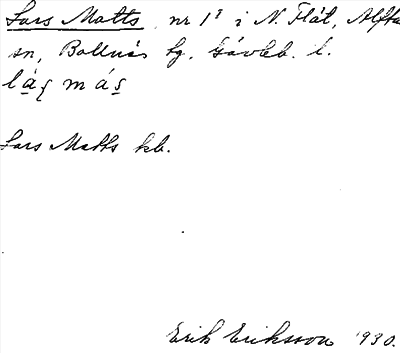 Lars Matts nr 1² i N. Flät, Alfta
sn, Bollnäs tg. Gävleb. l.
Lars Matts kb.
Erik Eriksson 1930.